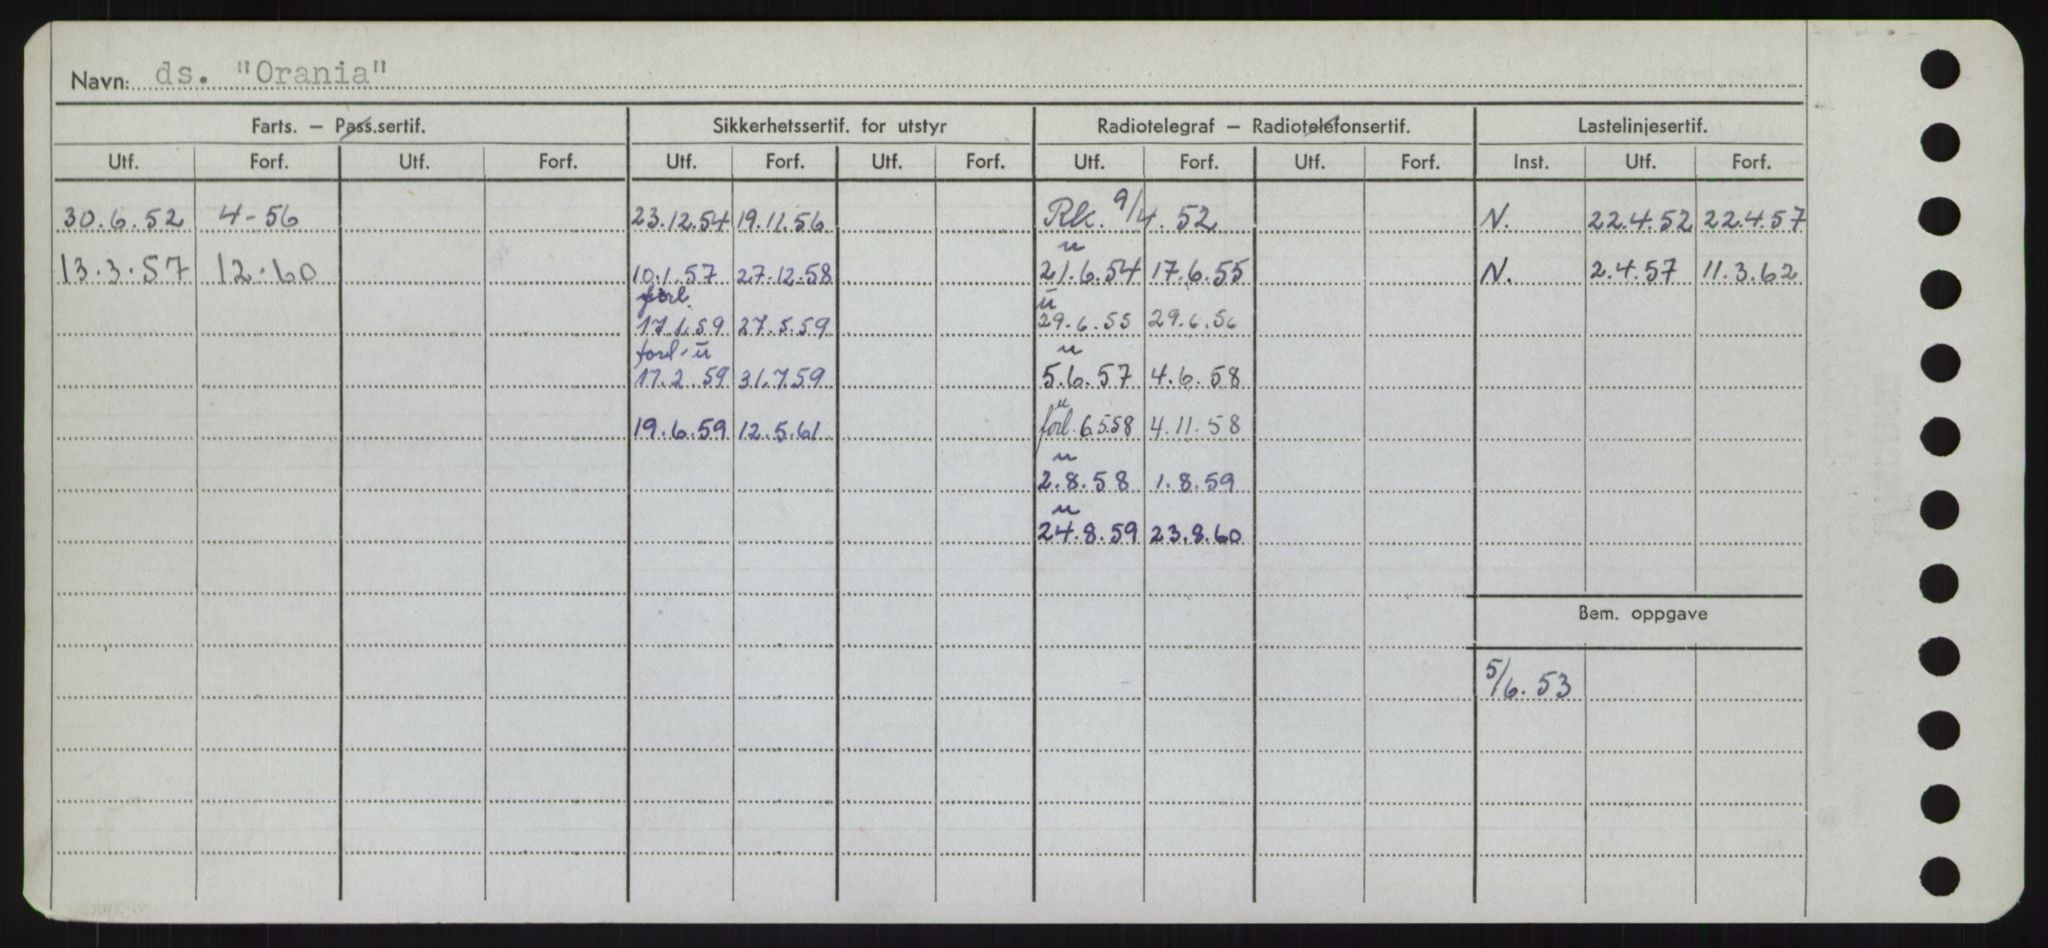 Navn: ds. "Orania"
Farts. — Pass.sertif. Sikkerhetssertif. for utstyr Radiotelegraf — Radiotelefonsertif. Lastelinjesertif.
Utf. Forf. Utf. Forf. Utf. Forf. Utf. Forf. Utf. Forf. Utf. Forf. Inst. Utf. Forf.
30.6.52 4-56 23.12.54 19.11.56 Rk. 9/4. 52 N. 22.4.52 22.4.57
u
13.3.57 12.60 10.1.57 27.12.58 21.6.54 17.6.55 N. 2.4.57 11.3.62
forl. u
17.1.59 27.5.59 29.6.55 29.6.56
forl. u u
17.2.59 31.7.59 5.6.57 4.6.58
u
19.6.59 12.5.61 forl. 6.5.58 4.11.58
u
2.8.58 1.8.59
u
24.8.59 23.8.60
Bem. oppgave
5/6. 53